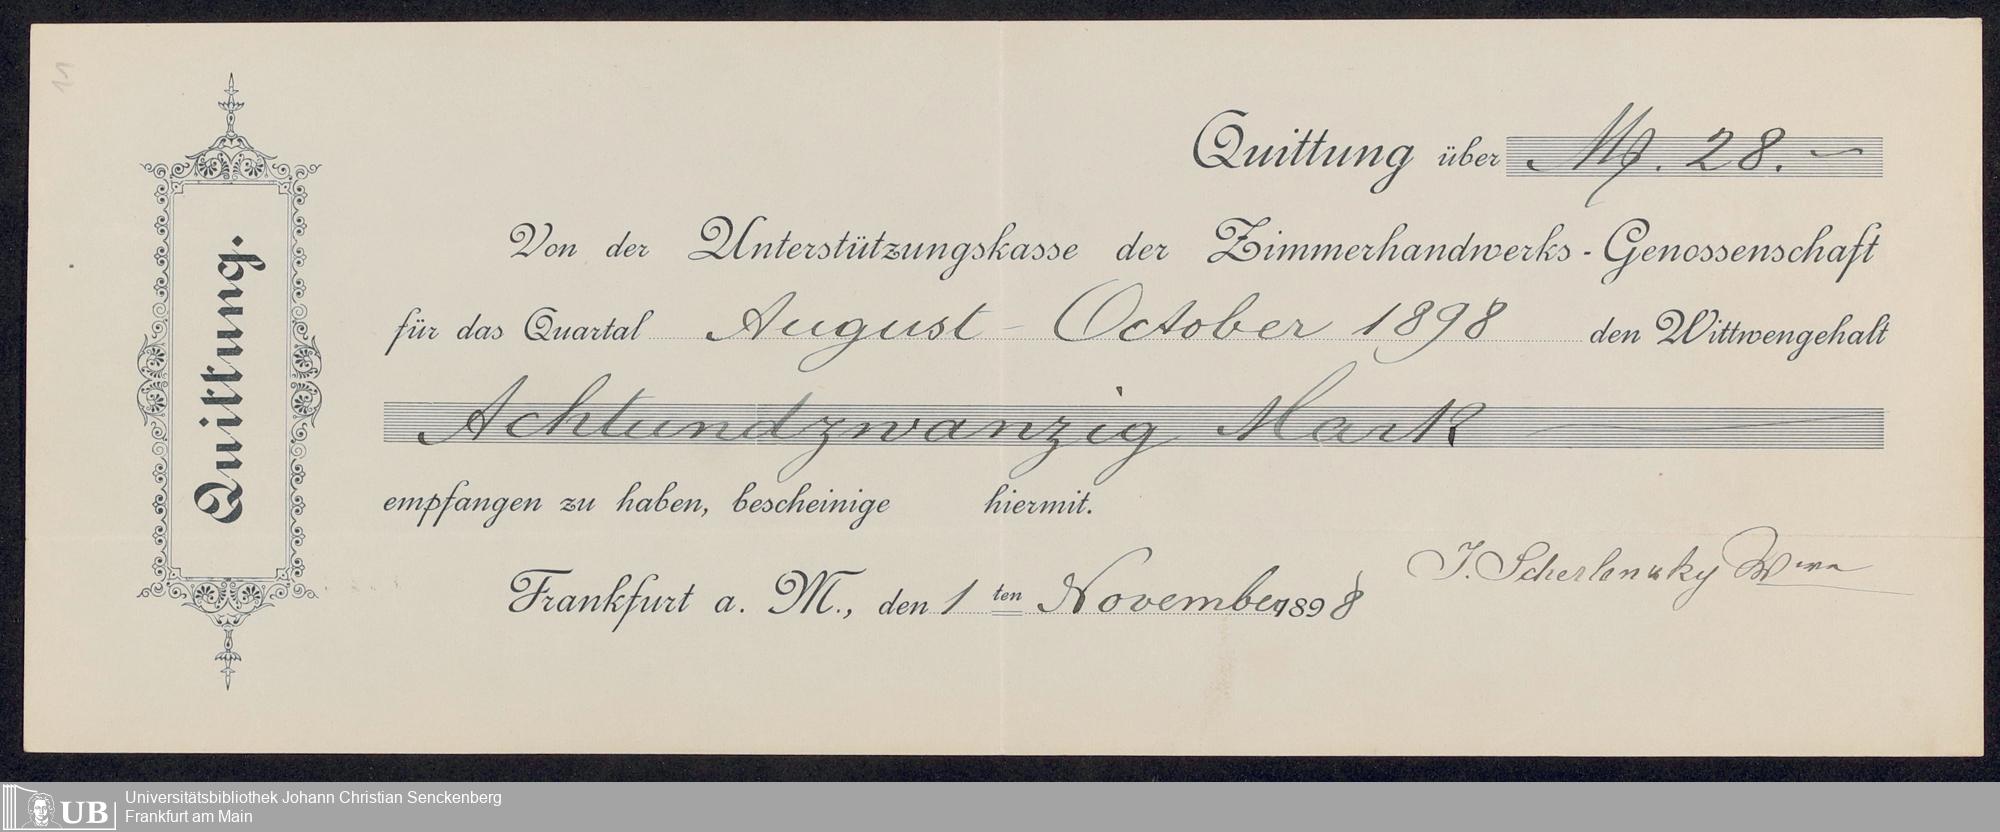 11
Quittung.
Quittung über Mq. 28.—
Von der Unterstützungskasse der Zimmerhandwerks-Genossenschaft
für das Quartal August - October 1898 den Wittwengehalt
Achtundzwanzig Mark —
empfangen zu haben, bescheinige hiermit.
J. Scherlensky Wwe
Frankfurt a. M., den 1 ten November 1898
UB Universitätsbibliothek Johann Christian Senckenberg
Frankfurt am Main